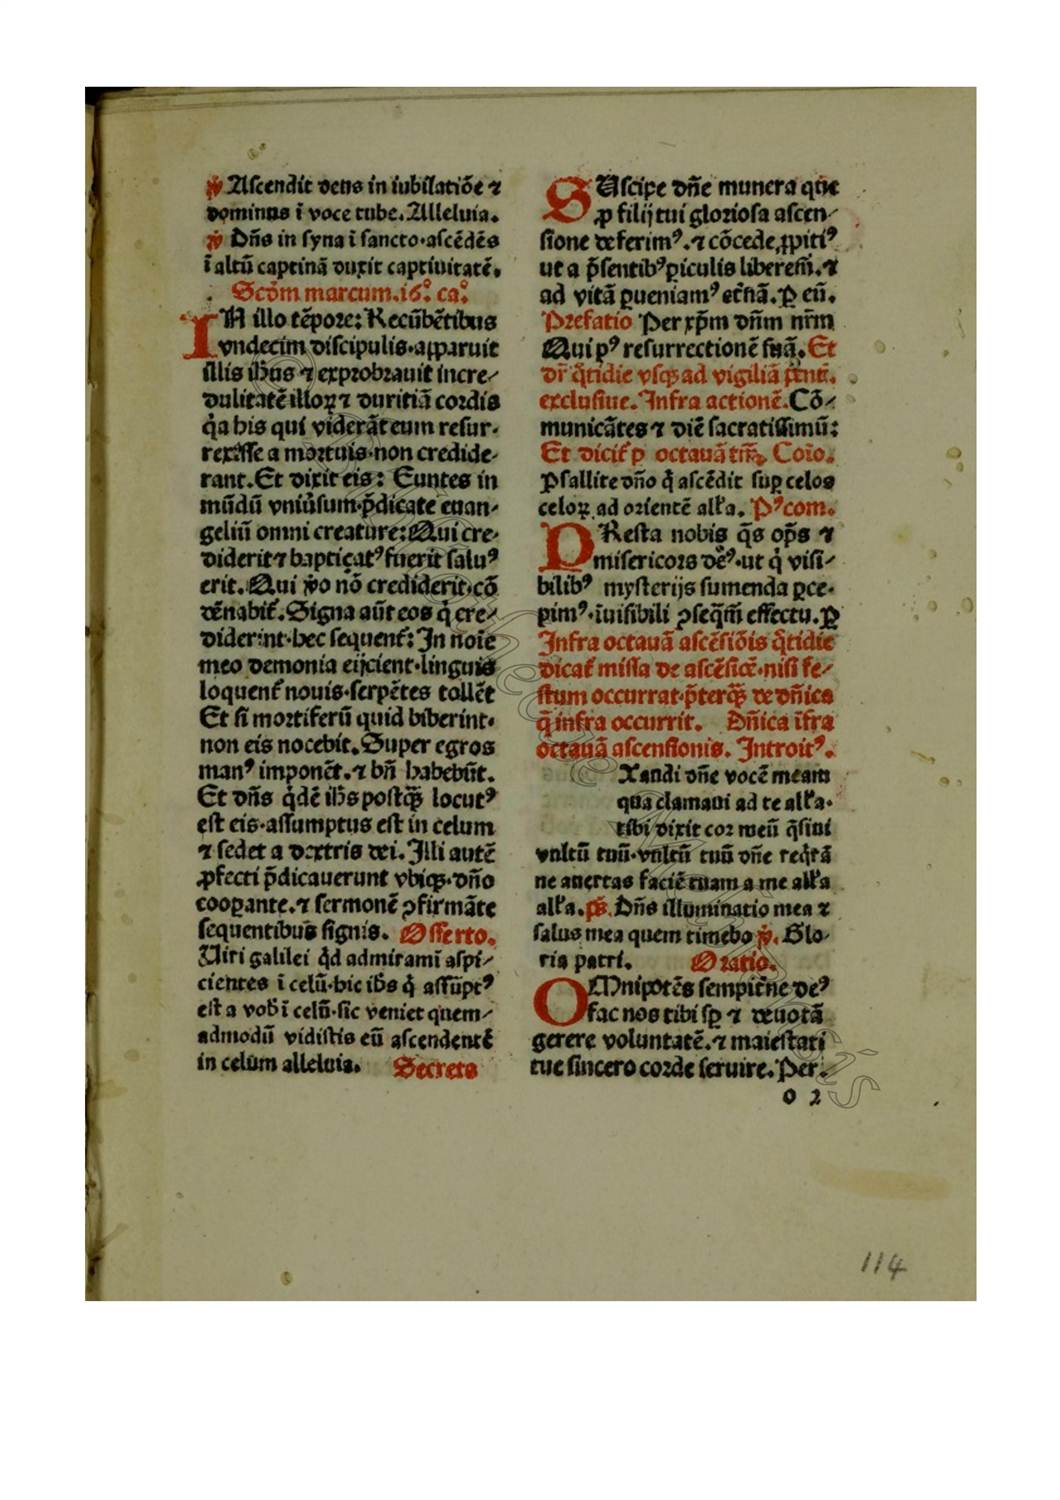 ℣ Ascendit deus in iubilatiōe ⁊
dominus ī voce tube. Alleluia.
℣ Dn̄s in syna ī sancto·ascēdēs
ī altū captiuā duxit captiuitatē.
Scd̄m marcum.16.° ca.°
IN illo tēpore: Recūbētibus
vndecim discipulis·apparuit
illis ih̄us ⁊ exprobrauit incre/
dulitatē illoꝝ ⁊ duritiā cordis
q̄a his qui viderāt eum resur-
rexisse a mortuis·non credide-
rant. Et dixit eis: Euntes in
mūdū vniūsum·p̄dicate euan-
geliū omni creature: Qui cre-
diderit ⁊ baptiçatꝰ fuerit saluꝰ
erit. Qui v̊o nō crediderit·cō
dēnabit̃. Signa aūt eos q̇ cre/
diderint·hec sequent̃: In noīe
meo demonia eijcient·linguis
loquent̃ nouis·serpētes tollēt
Et si mortiferū quid biberint·
non eis nocebit. Super egros
manꝰ imponēt.⁊ bn̄ habebūt.
Et dn̄s q̇dē ih̄s postq̄ꝫ locutꝰ
est eis·assumptus est in celum
⁊ sedet a dextris dei. Illi autē
ꝓfecti p̄dicauerunt vbiqꝫ·dn̄o
cooꝑante.⁊ sermonē ꝯfirmāte
sequentibus signis. Offerto.
Uiri galilei q̇d admiramī aspi/
cientes ī celū·hic ih̄s q̇ assūptꝰ
est a vob̄ ī celū·sic veniet quem/
admodū vidistis eū ascendentē
in celum alleluia. Secreta
SUscipe dn̄e munera que
ꝓ filij tui gloriosa ascen/
sione deferimꝰ.⁊ cōcede,ꝓpitiꝰ
ut a p̄sentibꝰ ꝑiculis liberem̄.⁊
ad vitā ꝑueniamꝰ et̃nā. ꝑ eū.
Prefatio Per xp̄m dn̄m nr̄m
Qui pꝰ resurrectionē suā. Et
dr̄ q̇tidie vsqꝫ ad vigiliā pent̃.
exclusiue. Infra actionē. Cō/
municātes ⁊ diē sacratissimū:
Et dicit̃ ꝑ octauā tm̄. Coīo.
Psallite dn̄o q̇ ascēdit suꝑ celos
celoꝝ ad orientē all̃a. Pꝰcom.
PResta nobis q̄s op̄s ⁊
misericors dēꝰ·ut q̇ visi/
bilibꝰ mysterijs sumenda ꝑce-
pimꝰ·īuisibili ꝯseq̄m̄ effectu. ꝑ
Infra octauā ascēsiōis q̇tidie
dicat̃ missa de ascēsiōe·nisi fe/
stum occurrat·p̄terq̄ꝫ de dn̄ica
q̄ infra occurrit. Dn̄ica īfra
octauā ascensionis. Introitꝰ.
Xaudi dn̄e vocē meam
qua clamaui ad te all̃a·
tibi dixit cor meū q̄siui
vultū tuū·vultū tuū dn̄e reqr̄ā
ne auertas faciē tuam a me all̃a
all̃a. ps̄. Dn̄s illuminatio mea ⁊
salus mea quem timebo ℣. Glo-
ria patri. Oratio.
OMnipotēs sempit̃ne deꝰ
fac nos tibi sꝑ ⁊ deuotā
gerere voluntatē.⁊ maiestati
tue sincero corde seruire. Per.
o 2
114